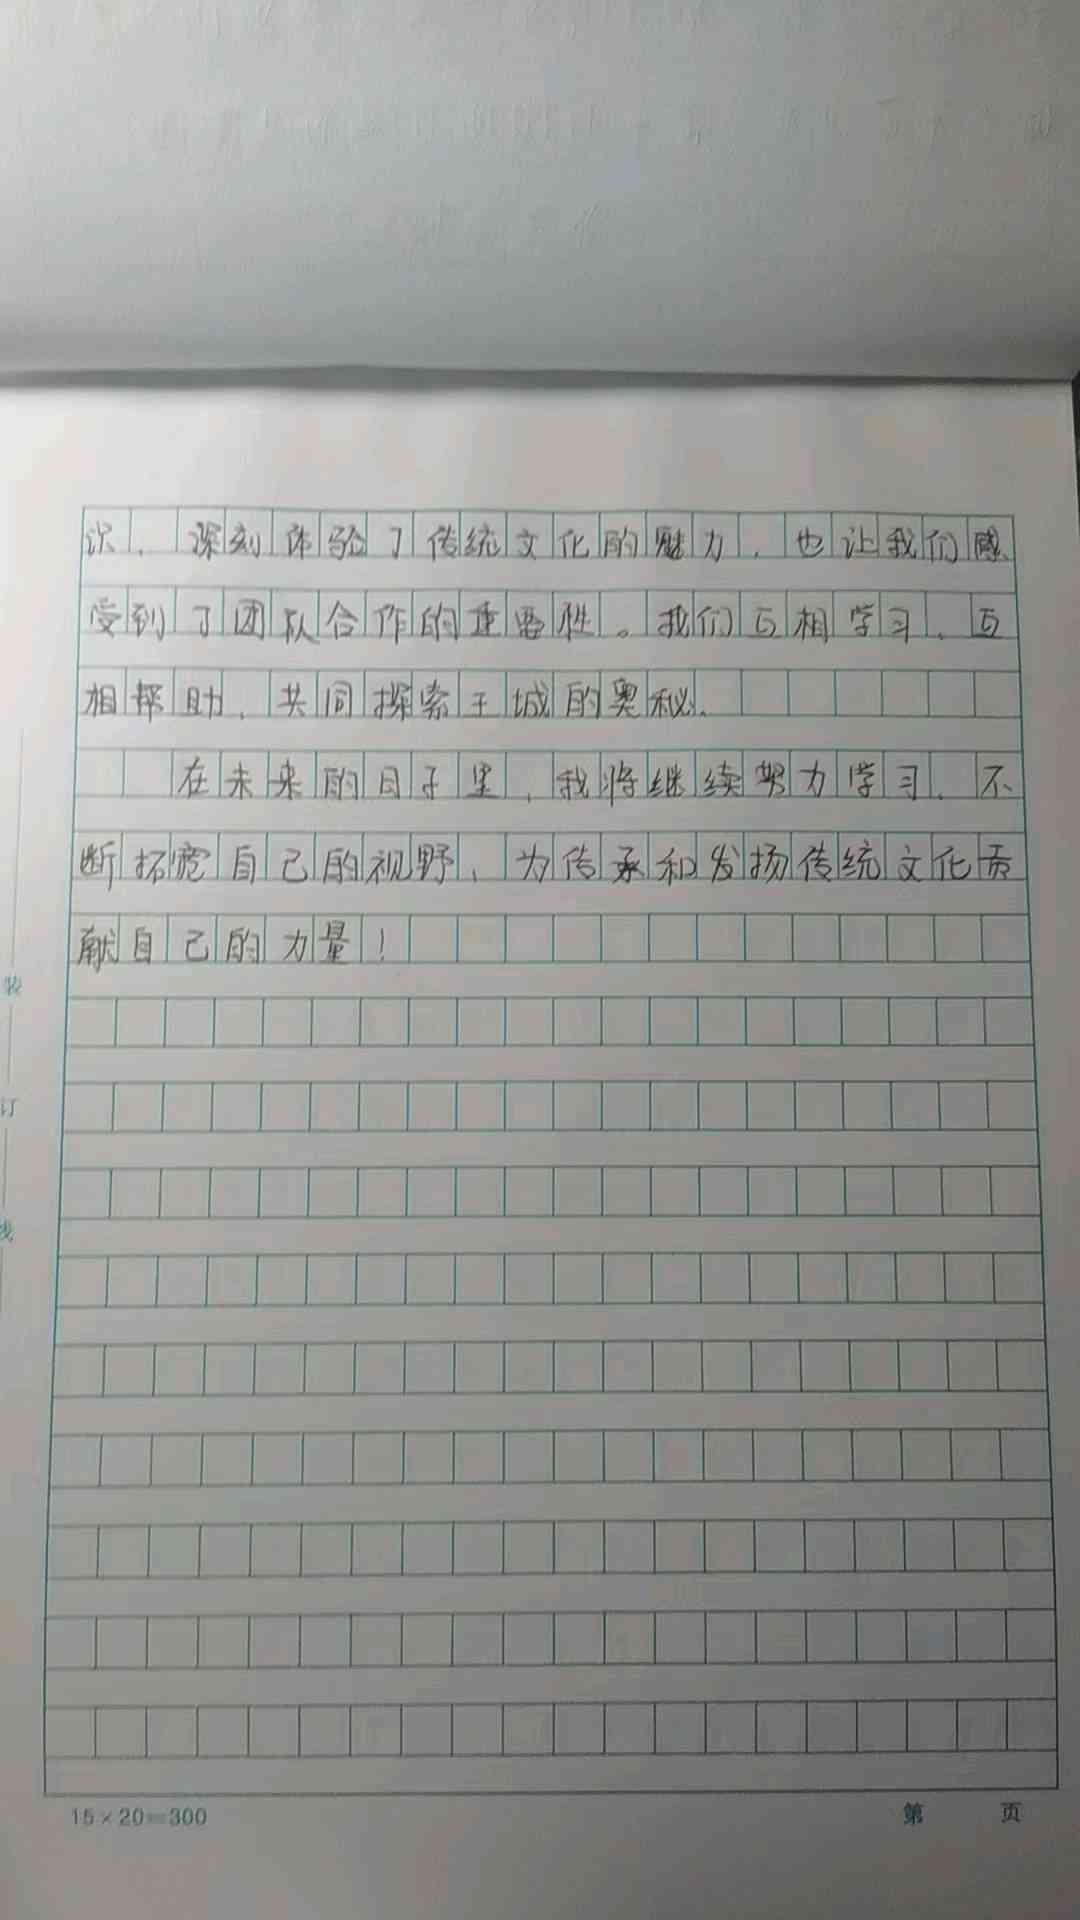 识，深刻体验了传统文化的魅力，也让我们感
受到了团队合作的重要性。我们互相学习，互
相帮助，共同探索王城的奥秘。
在未来的日子里，我将继续努力学习，不
断拓宽自己的视野，为传承和发扬传统文化贡
献自己的力量！
装
订
线
15×20=300
第 页